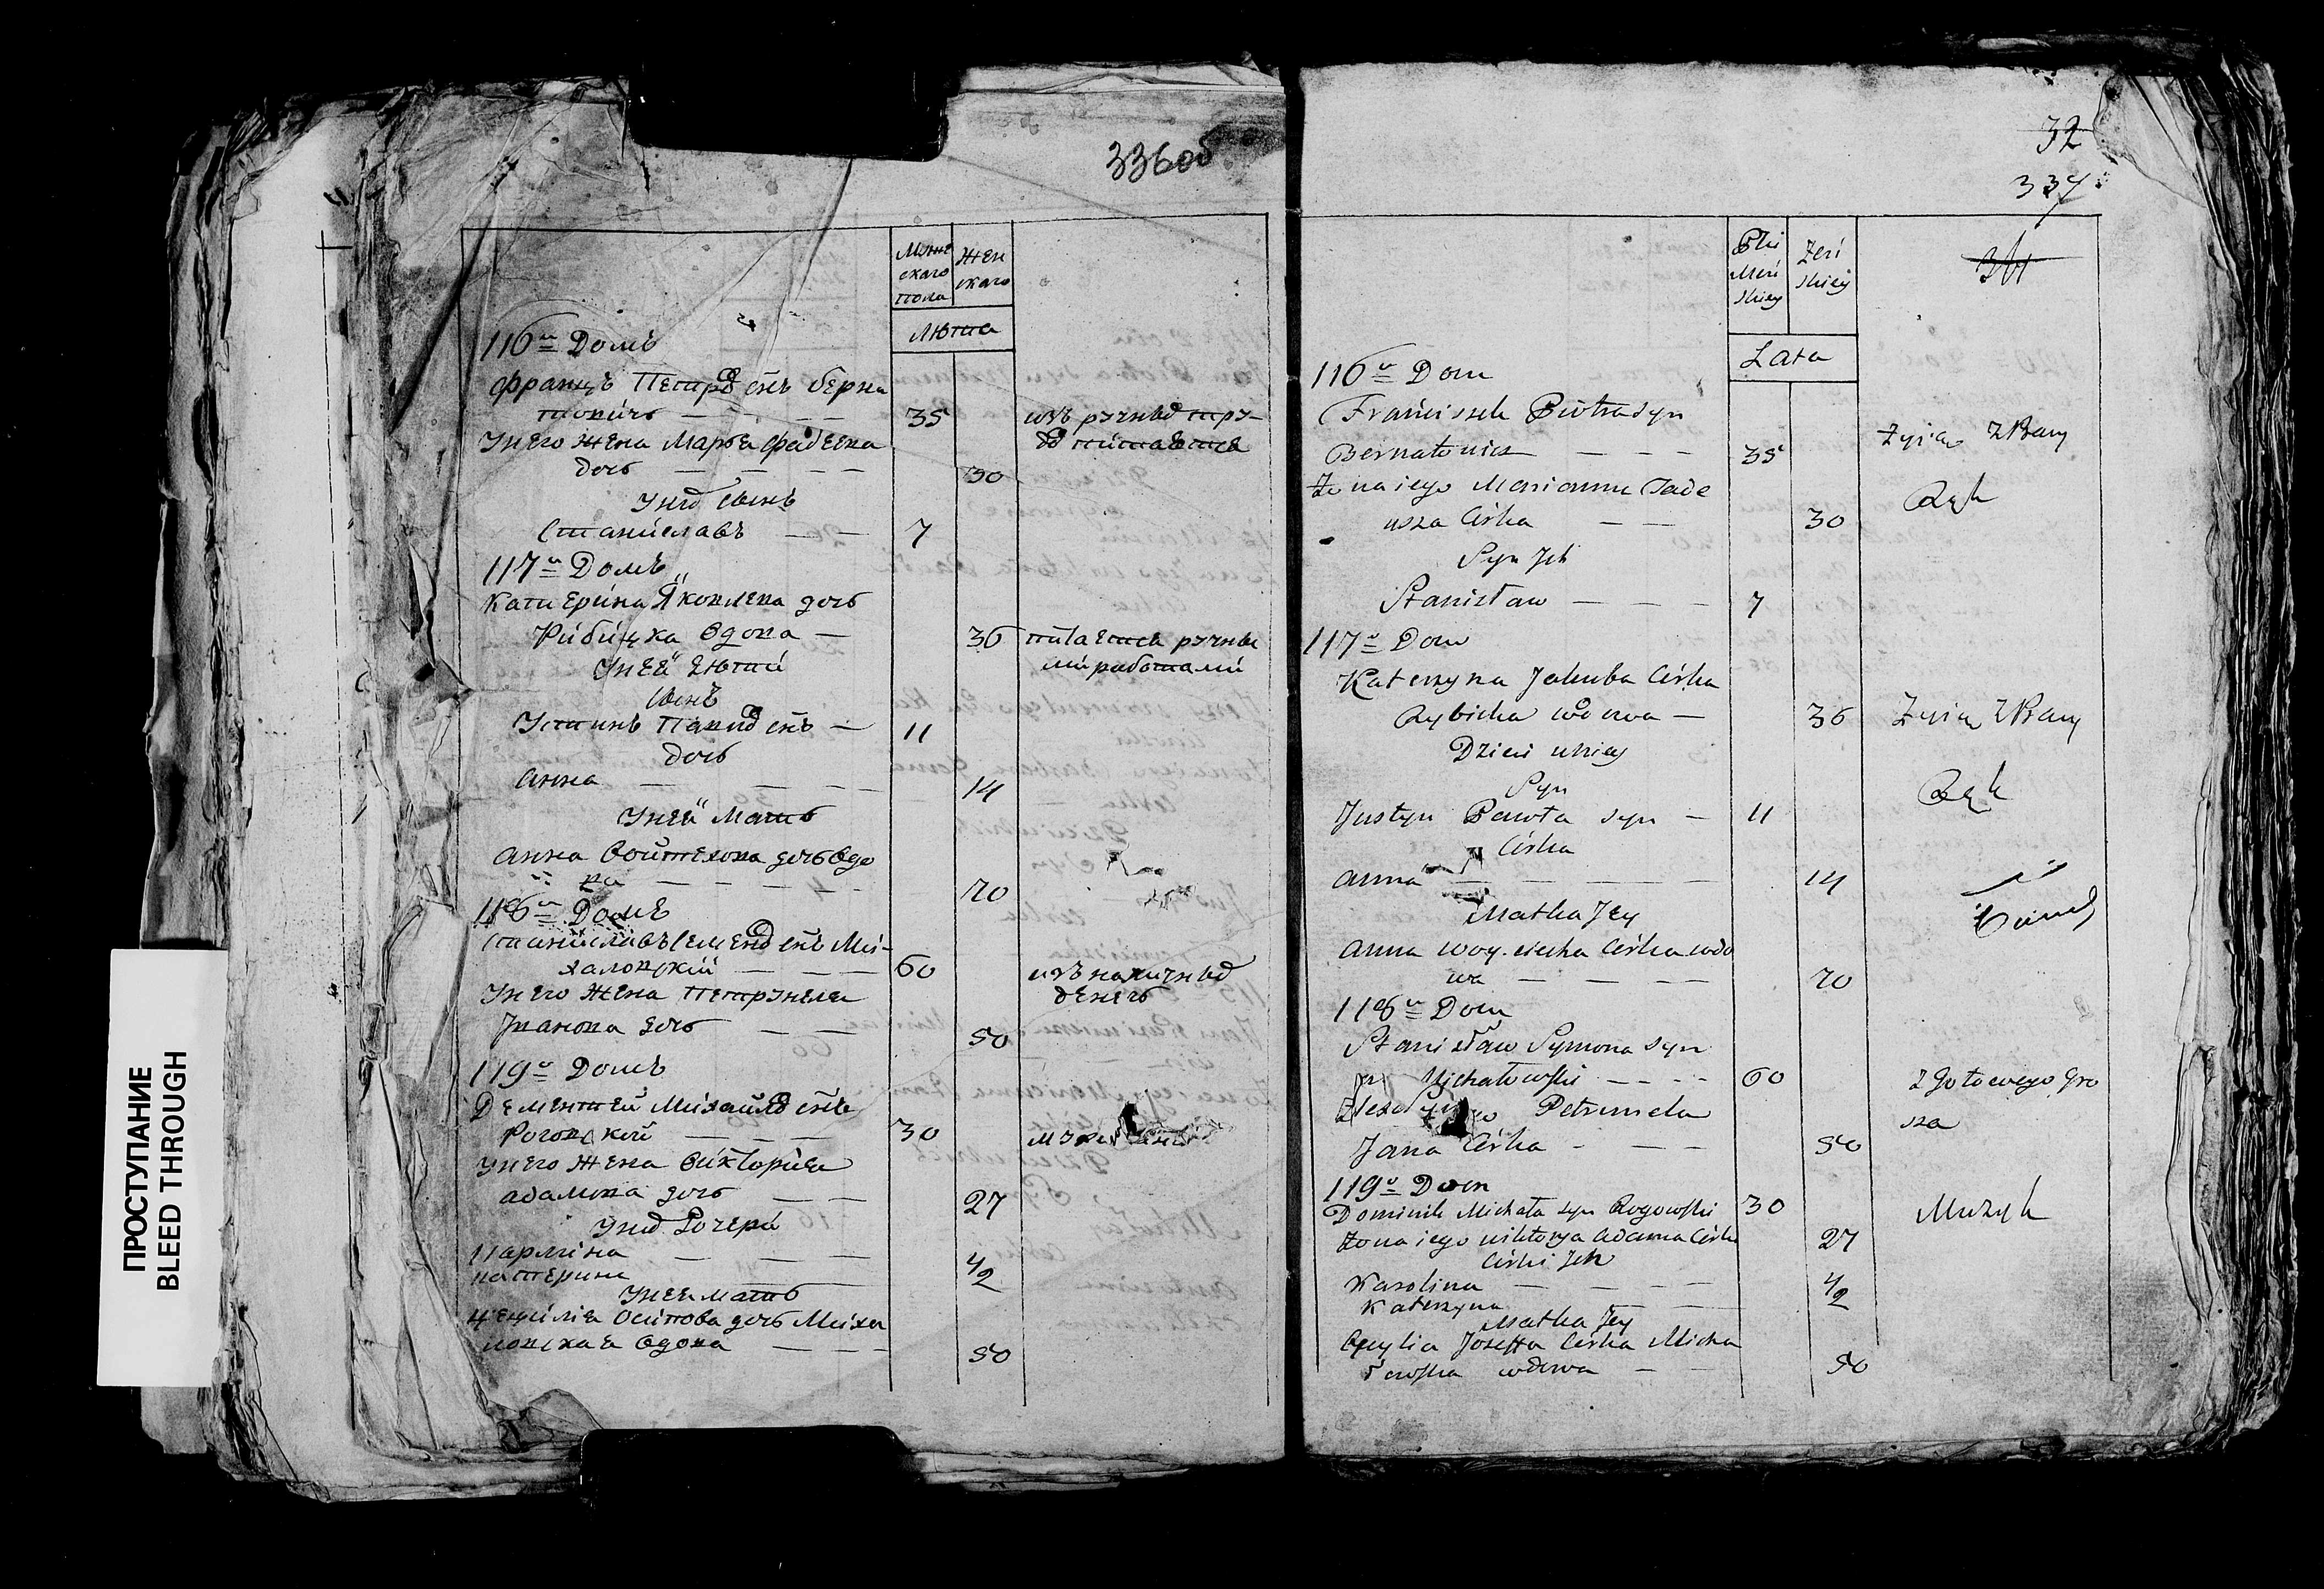 ПРОСТУПАНИЕ
BLEED THROUGH
336об
Муже
скаго
пола
Жен
скаго
Лѣта
116й Домъ
Францъ Петровъ снъ Берна
товичъ
35
изъ ручныхъ тру-
Унего жена Марья Фадеева
дочь
30
Унихъ сынъ
Станиславъ
7
117й Домъ
Катерина Яковлева дочь
Рибицка вдова
36
питается ручны
ми работами
Уней дѣти
сынъ
Устинъ Павловъ снъ
11
дочь
Анна
14
Уней мать
Анна Войтехова дочь вдо
ва
70
118й Домъ
Станиславъ Семеновъ снъ Ми-
халовский
60
изъ наличныхъ
денегъ
Унего жена Петрунеля
Иванова дочь
50
119й Домъ
Дементей Михайловъ снъ
Роговский
30
Унего жена Викторыя
Адамова дочь
27
Унихъ дочери
Карлина
4
Катерина
2
Уней мать
Цецилия Осипова дочь Миха
ловская вдова
50
32
337
Płci
Męs
skiey
Żeń
skiey
Lata
116y Dom
Franciszek Piotra syn
Bernatowicz
35
Żyie z Pracy
Rąk
Żona iego Marianna Tade
usza Córka
30
Syn Jch
Stanisław
7
117y Dom
Katerzyna Jakuba Córka
Rybicka wdowa
36
Żyie z Pracy
Rąk
Dzieci u niey
Syn
Justyn Pawła syn
11
Córka
Anna
14
Matka Jey
Anna Woyciecha Córka wdo
wa
70
118y Dom
Stanisław Symona syn
Michałowski
60
z Gotowego Gro
sza
Petrunela
Jana Córka
50
119y Dom
Dominik Michała syn Rogowski
30
Muzyk
Żona iego Wiktorya Adama Córka
27
Córki Jch
Karolina
4
Katerzyna
2
Matka Jey
Cecylia Josefa Córka Micha
łowska wdowa
50